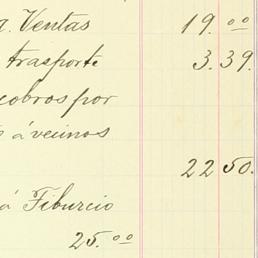 a. Ventas 19.00
trasporte 3.39.
cobros por
á vecinos
2250.
á Fiburcio
25.00